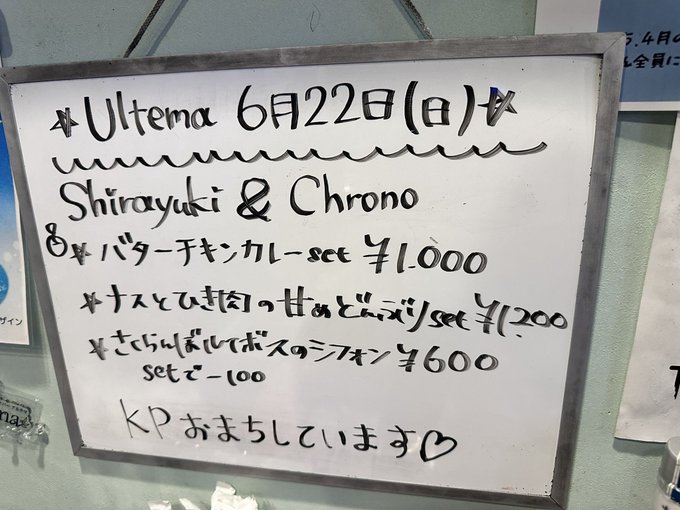 ☆Ultema 6月22日(日)☆
Shirayuki & Chrono
☆バターチキンカレーset ¥1.000
☆ナスとひき肉の甘めどんぶりset ¥1.200
☆さくらんぼルイボスのシフォン ¥600
setで-100
KPおまちしています♡
5.4月の
全員に
ザイン